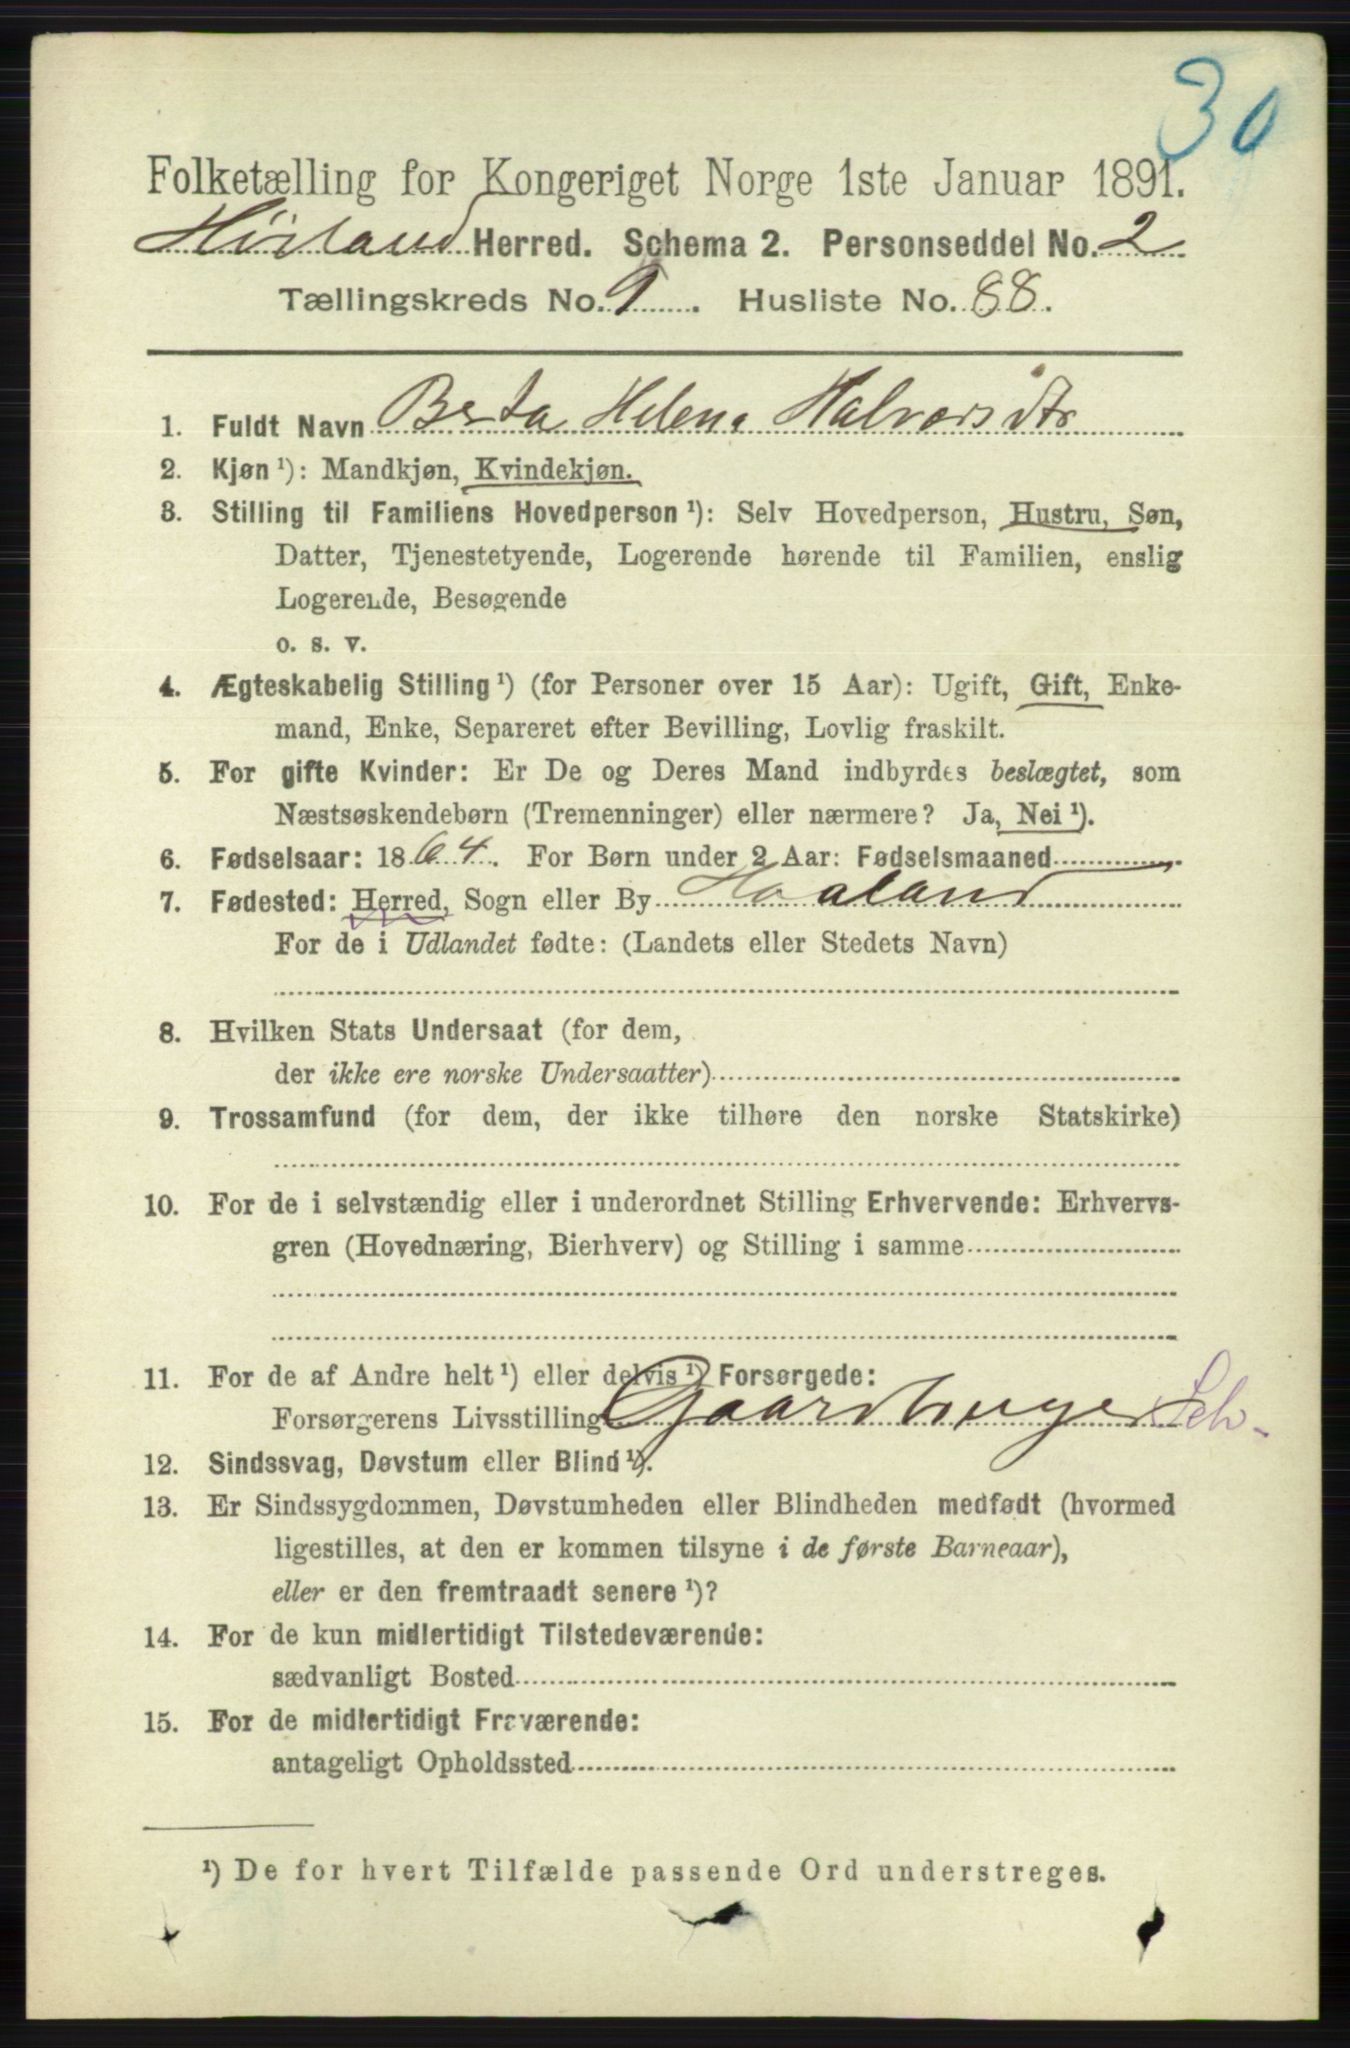 30
Folketælling for Kongeriget Norge 1ste Januar 1891.
Høiland Herred. Schema 2. Personseddel No. 2
Tællingskreds No. 9. Husliste No. 88.
1. Fuldt Navn Berta Helene Halvorsdtr
2. Kjøn ¹): Mandkjøn, Kvindekjøn.
3. Stilling til Familiens Hovedperson ¹): Selv Hovedperson, Hustru, Søn,
Datter, Tjenestetyende, Logerende hørende til Familien, enslig
Logerende, Besøgende
o. s. v.
4. Ægteskabelig Stilling ¹) (for Personer over 15 Aar): Ugift, Gift, Enke-
mand, Enke, Separeret efter Bevilling, Lovlig fraskilt.
5. For gifte Kvinder: Er De og Deres Mand indbyrdes beslægtet, som
Næstsøskendebørn (Tremenninger) eller nærmere? Ja, Nei ¹).
6. Fødselsaar: 1864. For Børn under 2 Aar: Fødselsmaaned
7. Fødested: Herred, Sogn eller By Haaland
For de i Udlandet fødte: (Landets eller Stedets Navn)
8. Hvilken Stats Undersaat (for dem,
der ikke ere norske Undersaatter)
9. Trossamfund (for dem, der ikke tilhøre den norske Statskirke)
10. For de i selvstændig eller i underordnet Stilling Erhvervende: Erhvervs-
gren (Hovednæring, Bierhverv) og Stilling i samme
11. For de af Andre helt ¹) eller delvis ¹) Forsørgede:
Forsørgerens Livsstilling Gaardbruger Selv.
12. Sindssvag, Døvstum eller Blind ¹).
13. Er Sindssygdommen, Døvstumheden eller Blindheden medfødt (hvormed
ligestilles, at den er kommen tilsyne i de første Barneaar),
eller er den fremtraadt senere ¹)?
14. For de kun midlertidigt Tilstedeværende:
sædvanligt Bosted
15. For de midlertidigt Fraværende:
antageligt Opholdssted
¹) De for hvert Tilfælde passende Ord understreges.